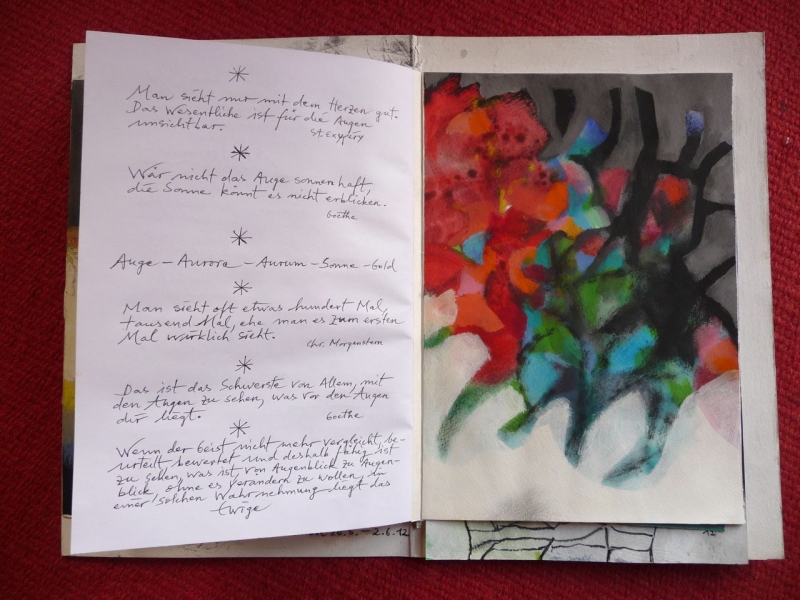 Man sieht nur mit dem Herzen gut.
Das Wesentliche ist für die Augen
unsichtbar.
St. Exupéry
Wär nicht das Auge sonnenhaft,
die Sonne könnt es nicht erblicken.
Goethe
Auge – Aurora – Aurum – Sonne – Gold
Man sieht oft etwas hundert Mal,
tausend Mal, ehe man es zum ersten
Mal wirklich sieht.
Chr. Morgenstern
Das ist das Schwerste von Allem, mit
den Augen zu sehen, was vor den Augen
dir liegt.
Goethe
Wenn der Geist nicht mehr vergleicht, be-
urteilt bewertet und deshalb fähig ist
zu sehen, was ist von Augenblick zu Augen-
blick, ohne es verändern zu wollen, in
einer solchen Wahrnehmung liegt das
Ewige
– 2.6.12
12